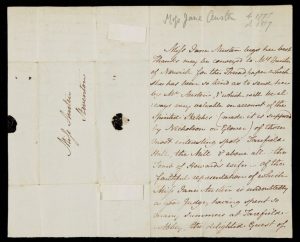 Miss Jane Austen
b 1775
d 1817
Miss Austen
Miss Jane Austen begs her best
Thanks may be conveyed to Mrs
of Norwich for the Thread paper & Card
she has been so kind as to send her
by Mr Austen, & which will be al
ways very valuable on account of the
Spirited Sketches (made it is supposed
by Nicholson or Glover) of those
most interesting spots, Tarefield
Hall, the Mill, & above all the
Tomb of Howard's wife, of the
faithful representation of which
Miss Jane Austen is undoubtedly
a good Judge, having spent so
many summers at Tarefield
Abbey the delighted Guest of